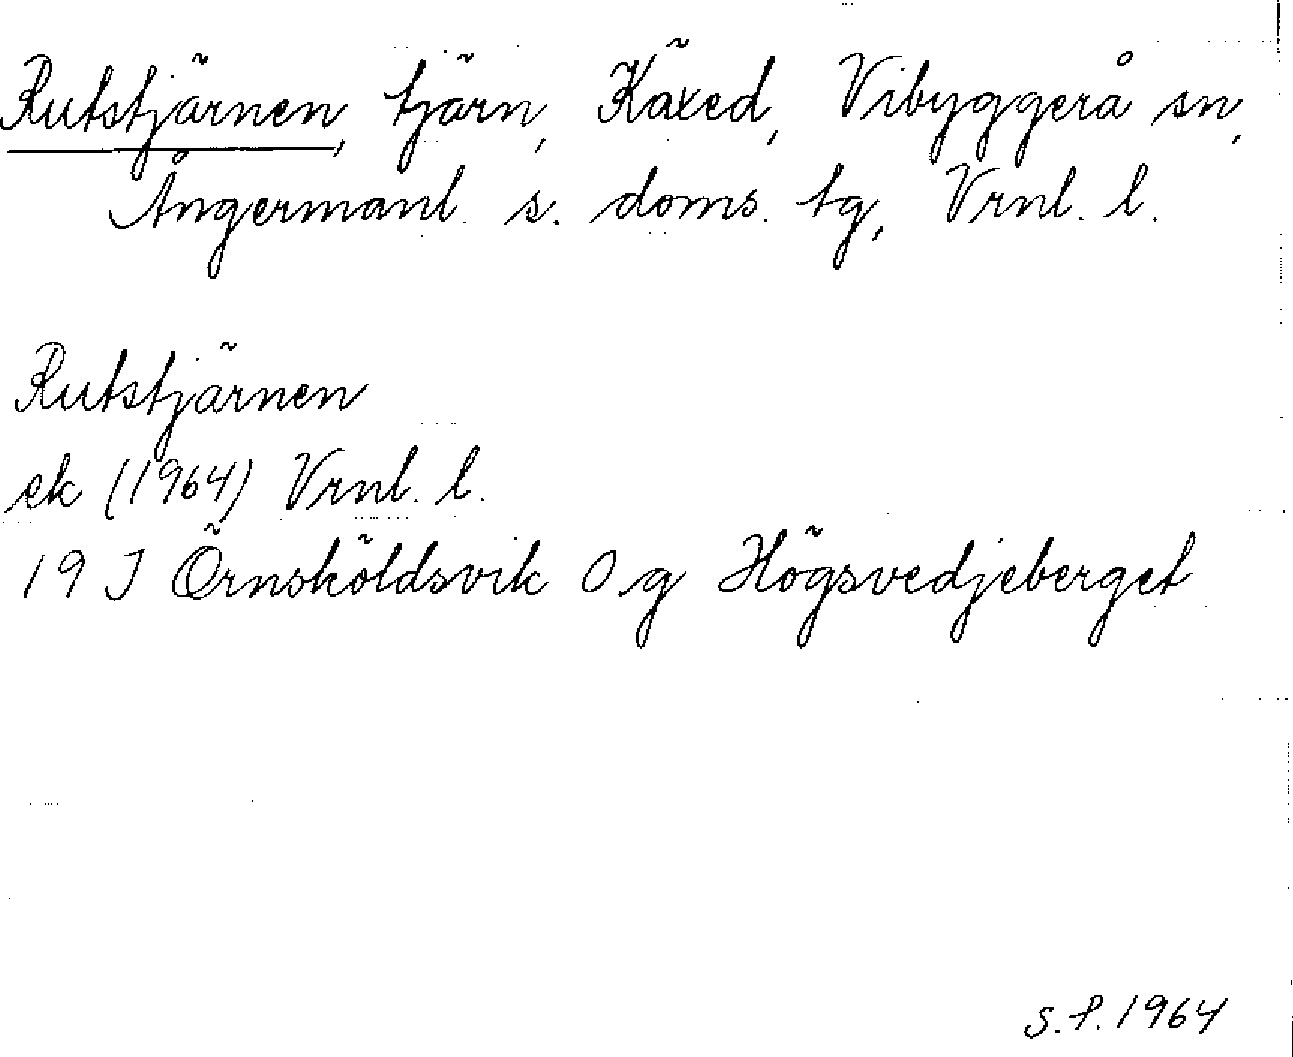 Rutstjärnen, tjärn, Käxed, Vibyggerå sn,
Ångermanl. s. doms. tg, Vrnl. l.
Rutstjärnen
ek (1964) Vrnl. l.
19 J Örnsköldsvik 0 g Högsvedjeberget
S. P. 1964